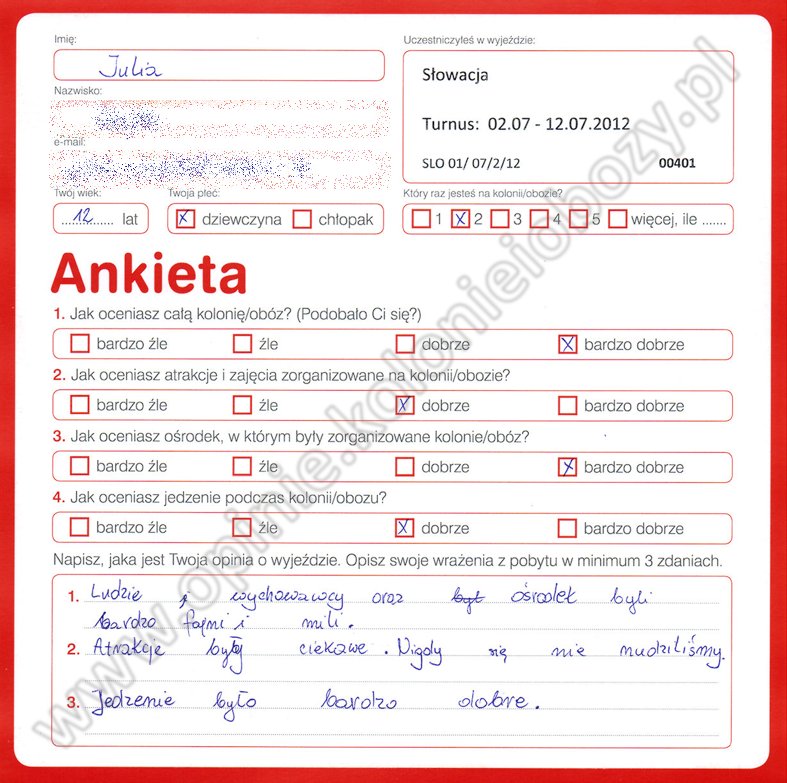 Imię:
Julia
Uczestniczyłeś w wyjeździe:
Słowacja
Turnus: 02.07 - 12.07.2012
SLO 01/ 07/2/12 00401
Nazwisko:
e-mail:
Twój wiek:
12 lat
Twoja płeć:
x dziewczyna chłopak
Który raz jesteś na kolonii/obozie?
1 x 2 3 4 5 więcej, ile .......
Ankieta
1. Jak oceniasz całą kolonię/obóz? (Podobało Ci się?)
bardzo źle źle dobrze x bardzo dobrze
2. Jak oceniasz atrakcje i zajęcia zorganizowane na kolonii/obozie?
bardzo źle źle x dobrze bardzo dobrze
3. Jak oceniasz ośrodek, w którym były zorganizowane kolonie/obóz?
bardzo źle źle dobrze x bardzo dobrze
4. Jak oceniasz jedzenie podczas kolonii/obozu?
bardzo źle źle x dobrze bardzo dobrze
Napisz, jaka jest Twoja opinia o wyjeździe. Opisz swoje wrażenia z pobytu w minimum 3 zdaniach.
1. Ludzie , wychowawcy oraz był ośrodek byli
bardzo fajni i mili.
2. Atrakcje były ciekawe. Nigdy się nie nudziliśmy.
3. Jedzenie było bardzo dobre.
www.opinie.kolonieiobozy.pl